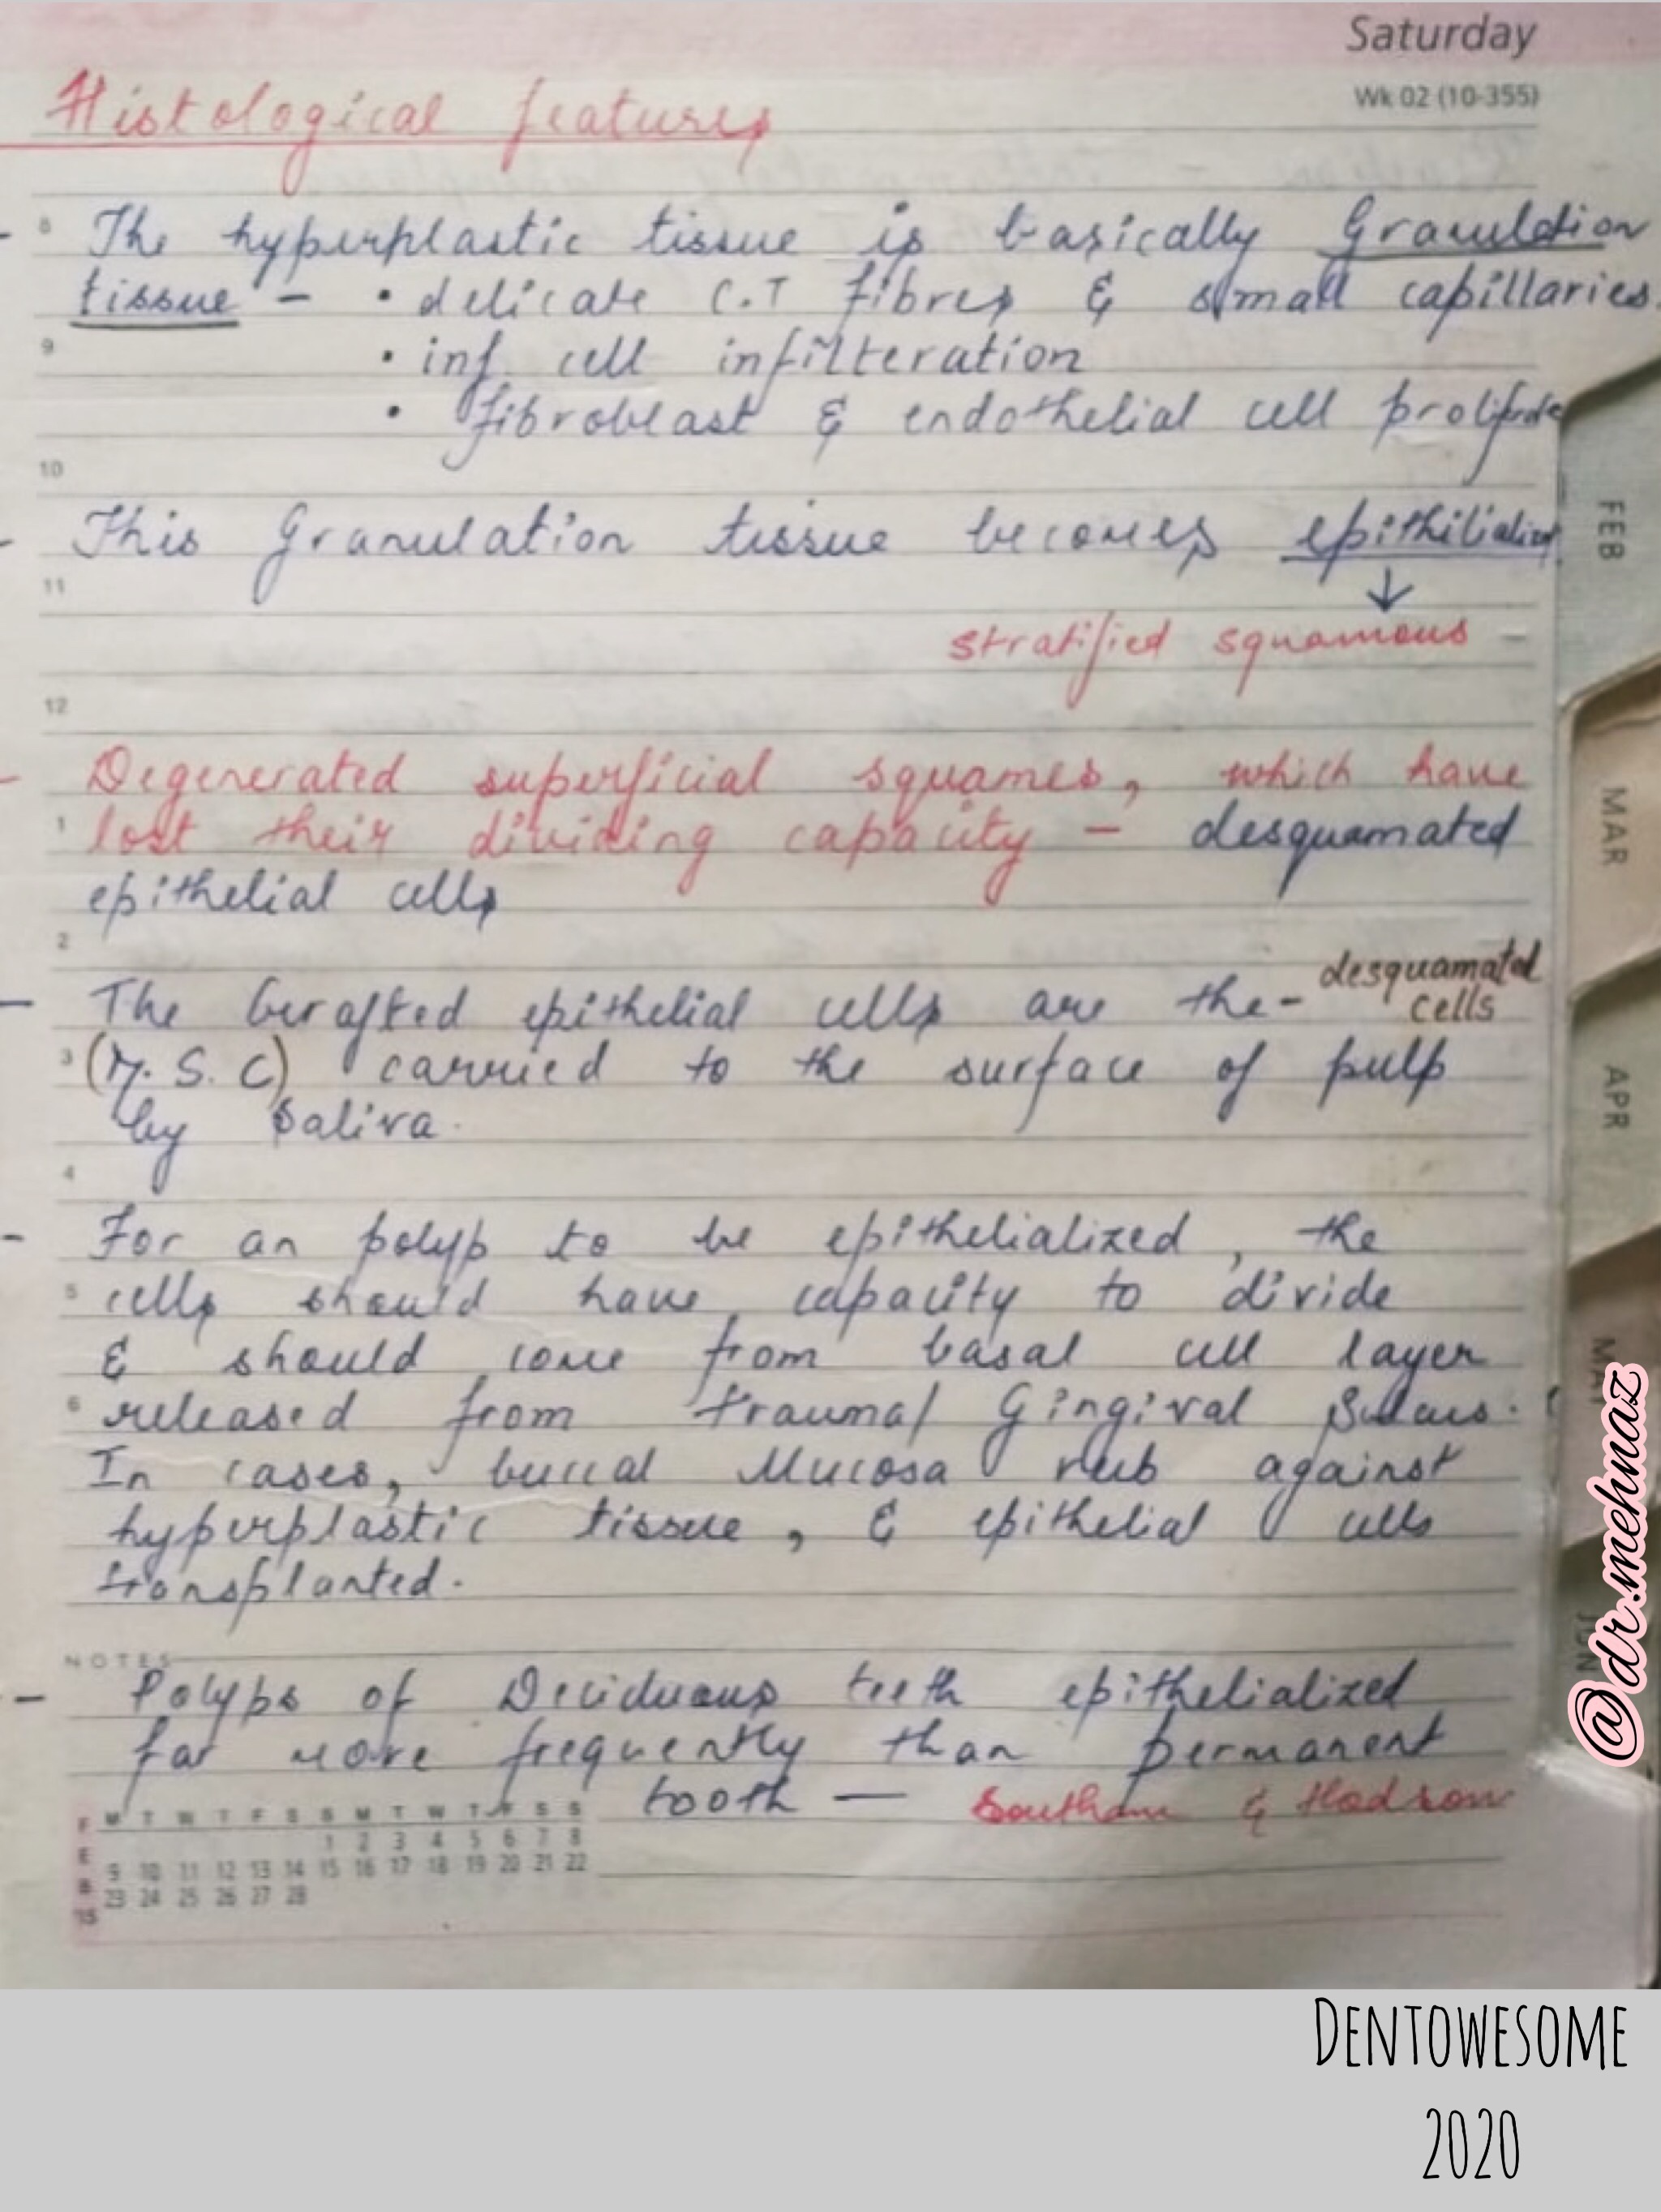 Saturday
Wk 02 (10-355)
Histological features
8
- The hyperplastic tissue is basically Granulation
tissue - • delicate C.T fibres & small capillaries.
9
• inf. cell infilteration
• fibroblast & endothelial cell
10
- This Granulation tissue becomes
11
↓
stratified squamous -
12
- Degenerated superficial squames, which have
1 lost their dividing capacity - desquamated
epithelial cells
2
- The Grafted epithelial cells are the - desquamated cells
3 (M.S.C) carried to the surface of pulp
by saliva.
4
- For an polyp to be epithelialized, the
5 cells should have capacity to divide
& should come from basal cell layer
6 released from trauma/ Gingival Sulcus.
In cases, buccal Mucosa rub against
hyperplastic tissue, & epithelial cells
transplanted.
NOTES
- Polyps of Deciduous teeth epithelialized
far more frequently than permanent
tooth — Southam & Hodson
FEB 15
M T W T F S S M T W T F S S
1 2 3 4 5 6 7 8
9 10 11 12 13 14 15 16 17 18 19 20 21 22
23 24 25 26 27 28
FEB
MAR
APR
MAY
JUN
@dr.mehnaz
DENTOWESOME
2020